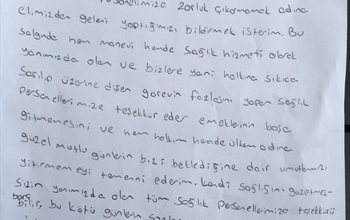 zorluk çıkarmamak adına
elimizden geleni yaptığımızı bildirmek isterim. Bu
salgında hem manevi hemde sağlık hizmeti olarak
yanımızda olan ve bizlere yani halkına sıkıca
sarılıp üzerine düşen görevin fazlasını yapan sağlık
personellerimize teşekkür eder emeklerin boşa
gitmemesini ve hem halkım hemde ülkem adına
güzel mutlu günlerin bizi beklediğine dair umutlarımızı
yitirmemeyi temenni ederim. Kendi sağlığını gözetmek-
sizin yanımızda olan tüm sağlık personellerimize teşekkürü
borç bilir, bu kötü günlerin